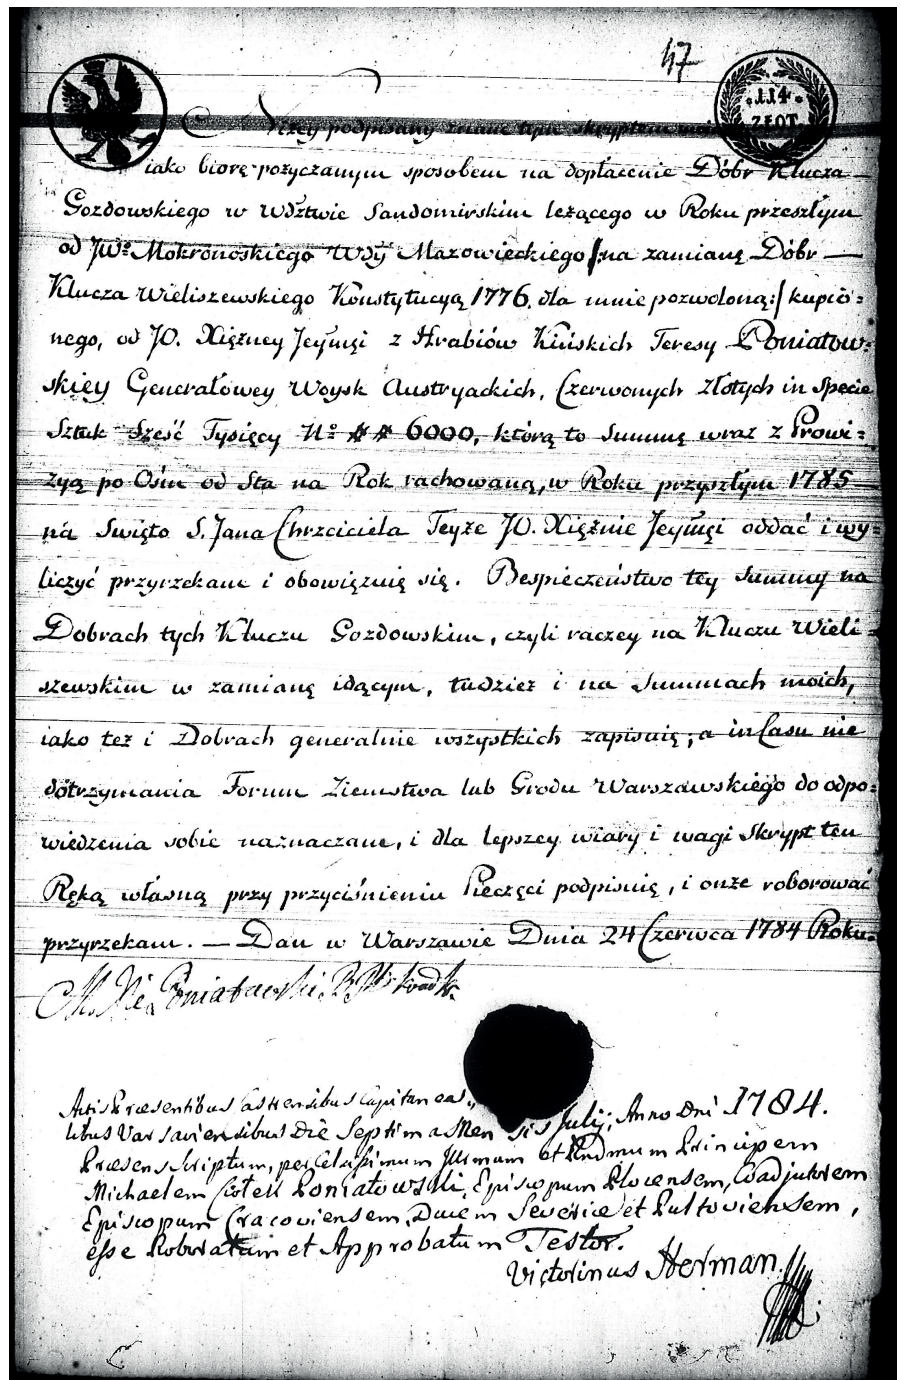 47
114 ZŁOT
Niżey podpisany znane tym skryptem moim
iako biorę pożyczanym sposobem na dopłacenie Dóbr Klucza
Gozdowskiego w Wdztwie Sandomirskim leżącego w Roku przeszłym
od JWo Mokronoskiego Wdy Mazowieckiego /:na zamianę Dóbr —
Klucza Wieliszewskiego Konstytucyą 1776. dla mnie pozwoloną:/ kupio=
nego, od JO. Xiężney Jeymći z Hrabiów Kińskich Teresy Poniatow=
skiey Generałowey Woysk Austryackich, Czerwonych złotych in Specie
Sztuk Sześć Tysięcy No ## 6000, którą to Summę wraz z Prowi=
zyą po Ośm od Sta na Rok rachowaną, w Roku przyszłym 1785
na Swięto S. Jana Chrzciciela Teyże JO. Xiężnie Jeymći oddać i wy=
liczyć przyrzekam i obowięzuię się. Bespieczeństwo tey Summy na
Dobrach tych Kluczu Gozdowskim, czyli raczey na Kluczu Wieli=
szewskim w zamianę idącym, tudzież i na Summach moich,
iako też i Dobrach generalnie wszystkich zapisuię; a in Casu nie
dotrzymania Forum Ziemstwa lub Grodu Warszawskiego do odpo=
wiedzenia sobie naznaczam, i dla lepszey wiary i wagi Skrypt ten
Ręką własną przy przyciśnieniu Pieczęci podpisuię, i onże roborować
przyrzekam. — Dan w Warszawie Dnia 24 Czerwca 1784 Roku.
M. Xże Poniatowski
Actis Præsentibus Castrensibus Capitanea=
libus Varsaviensibus Die Septima Mensis Julij, Anno Dni 1784.
Præsens Scriptum, per Celsissimum Illrmum et Rndmum Principem
Michaelem Ciołek Poniatowski, Episcopum Plocensem, Coadjutorem
Episcopum Cracoviensem, Ducem Severiæ et Pultoviensem,
esse Roboratum et Approbatum Testor.
Victorinus Herman.